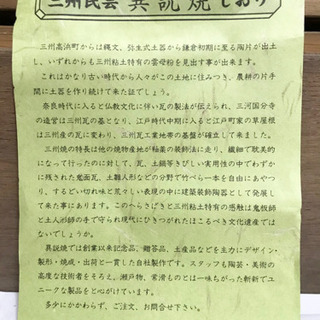 三州民芸 異説焼 しおり
三州高浜町からは縄文、弥生式土器から鎌倉初期に至る陶片が出土
し、いずれからも三州粘土特有の雲母粉を見出す事が出来ます。
これはかなり古い時代から人々がこの土地に住みつき、農耕の片手
間に土器を作り続けて来た証でしょう。
奈良時代に入ると仏教文化に伴い瓦の製法が伝えられ、三河国分寺
の造営は三州瓦の基となり、江戸時代中期に入ると江戸町家の草屋根
は三州産の瓦に変わり、三州瓦工業地帯の基盤が確立して来ました。
三州焼の特長は他の焼物産地が釉薬の装飾法に走り、繊細で耽美的
になって行ったのに対して、瓦、土鍋等きびしい実用性の中でわずか
に残された鬼面瓦、土雛人形などの分野で竹べら一本を自由にあやつ
り、するどい切れ味と荒々しい表現の中に建築装飾陶器として発展し
て来た事にあります。このへらさばきと三州粘土特有の感触は鬼板師
と土人形師の手で守られ現代にひきつがれたほこるべき文化遺産では
ないでしょうか。
異説焼では創業以来記念品、贈答品、土産品などを主力にデザイン・
製形・焼成・出荷と一貫した自社製作です。スタッフも陶芸・美術の
高度な技術者をそろえ、瀬戸物、常滑ものとは一味ちがった斬新でユ
ニークな製品をと心がけています。
多少にかかわらず、ご注文、お問合せ下さい。